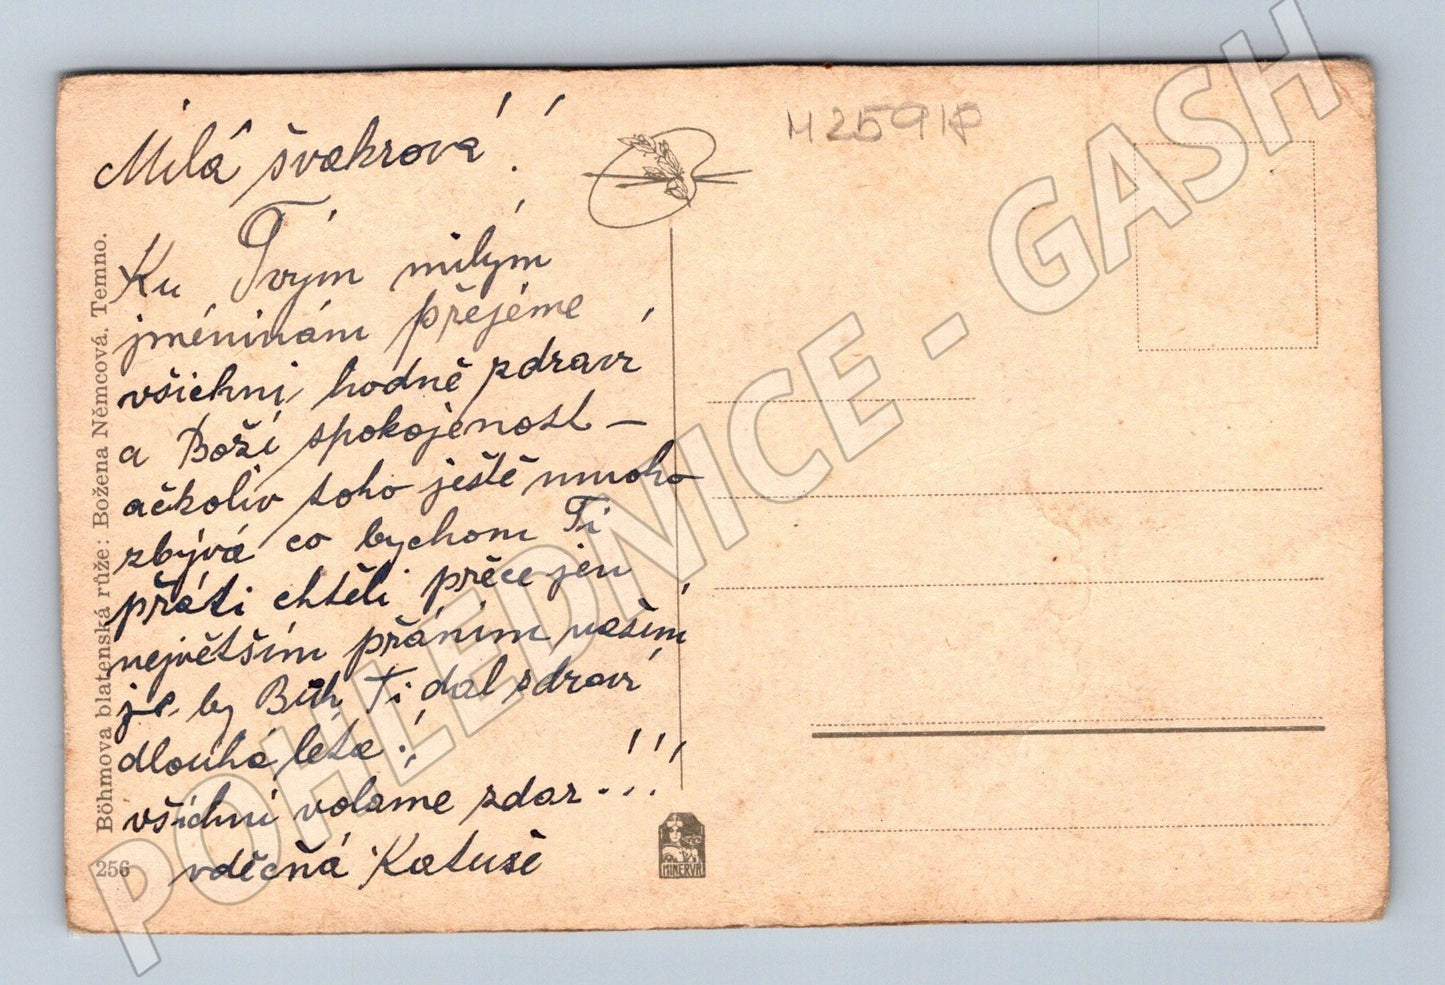 M 2591P
Milá švakrová!
Ku Tvým milým
jméninám přejéme
všichni, hodně zdraví
a Boží spokojenost –
ačkoliv toho ještě mnoho
zbývá co bychom Ti
přáti chtěli přece jen
největším přáním naším
je by Bůh Ti dal zdraví
dlouhá léta!
všichni voláme zdar...!!!
vděčná Katuše
Böhmova blatenská růže: Božena Němcová. Temno.
256
MINERVA
POHLEDNICE - GASH